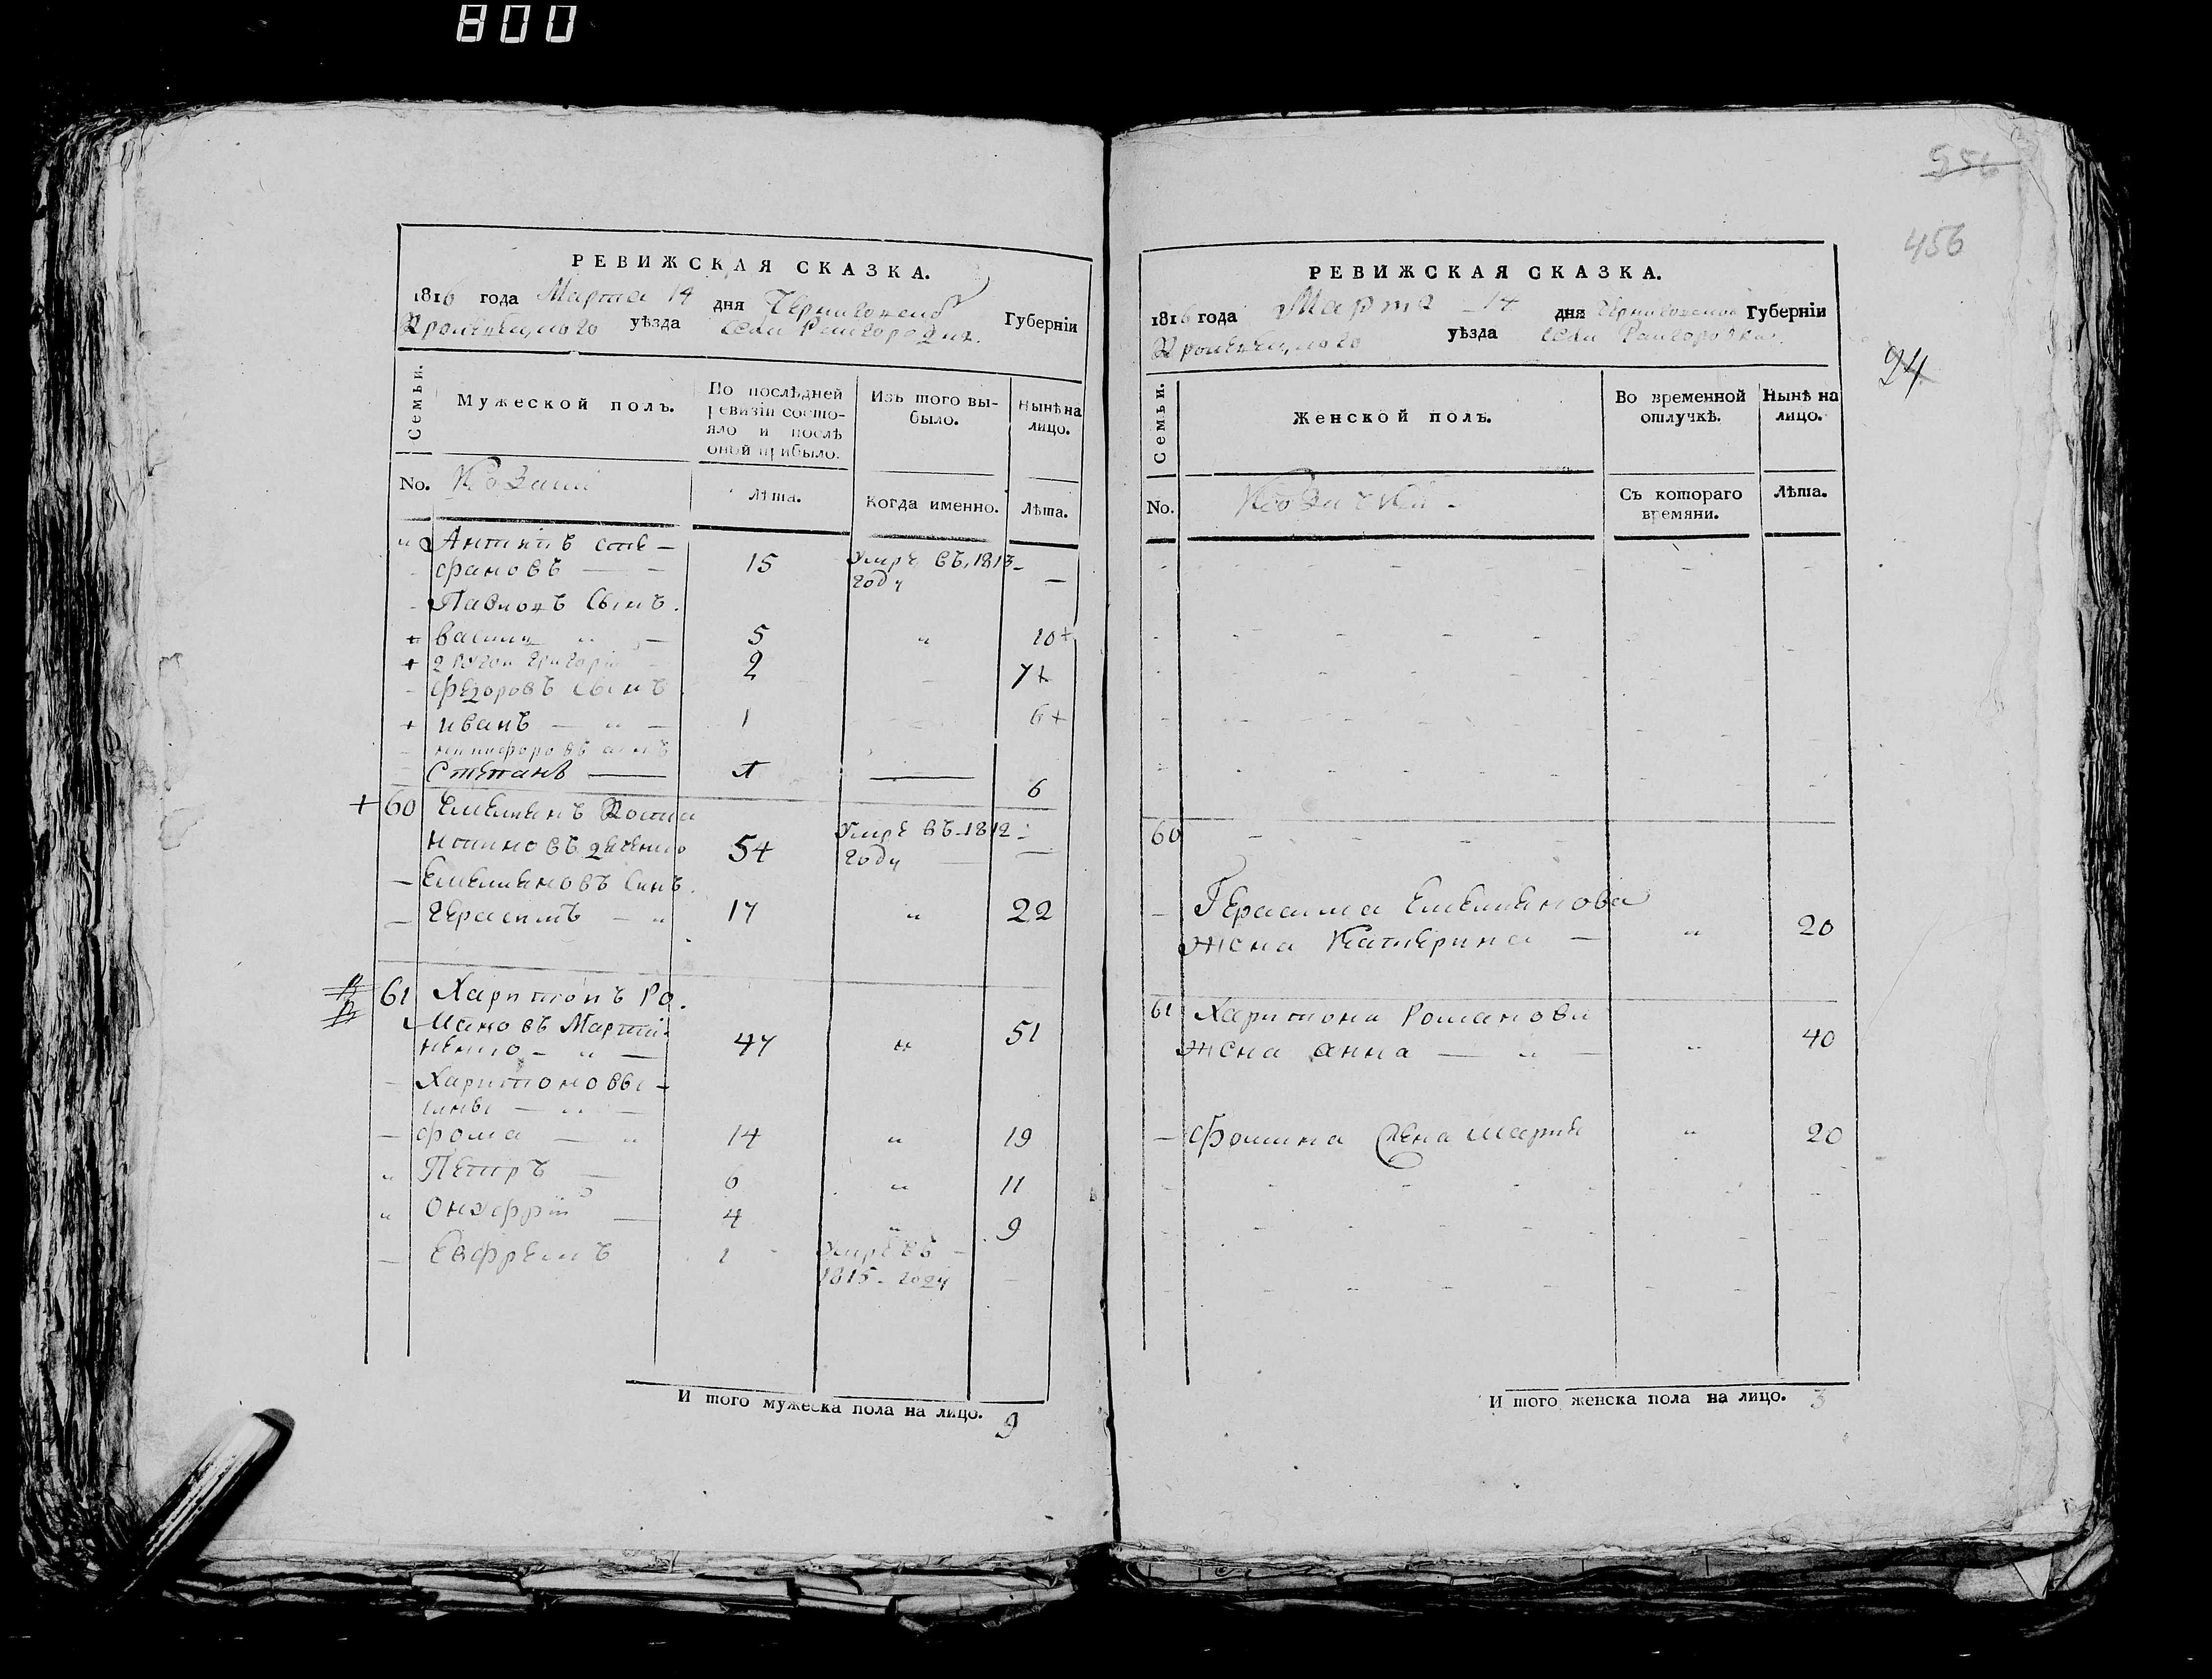 800
РЕВИЖСКАЯ СКАЗКА.
1816 года Марта 14 дня Черниговской Губерніи
Кролевецкаго уѣзда села Райгородка.
Семьи.
Мужеской полъ.
По послѣдней ревизіи состояло и послѣ оной прибыло.
Изъ того выбыло.
Нынѣ на лицо.
No.
Козаки
Лѣта.
Когда именно.
Лѣта.
„ Антипъ Сте-
фановъ — 15 Умре въ 1813
году —
- Павловъ сынъ.
+ василий „ — 5 „ 10+
+ 2 другой григорій 2 7+
- федоровъ сынъ
+ иванъ — „ — 1 6+
- никифоровъ сынъ
Степанъ — 1 — 6
+ 60 Емельянъ Конста
нтиновъ 54 Умре въ 1812
году —
— Емельяновъ синъ.
— герасимъ — „ 17 „ 22
61 Харитонъ Ро.
мановъ Марти-
ненко — „ — 47 „ 51
— Харитоновы -
сины — „ —
— фома — „ 14 „ 19
„ Петръ — 6 „ 11
„ Онуфрій — 4 „ 9
— Евфремъ 1 Умре въ
1815 году
И того мужеска пола на лицо. 9
556
456
24
РЕВИЖСКАЯ СКАЗКА.
1816 года Марта 14 дня Черниговской Губерніи
Кролевецкаго уѣзда села Райгородка.
Семьи.
Женской полъ.
Во временной отлучкѣ.
Нынѣ на лицо.
No.
Козачки
Съ котораго времяни.
Лѣта.
60
— Герасима Емельянова
жена Катерина — „ 20
61 Харитона Романова
жена анна — „ — „ 40
— Фомина жена мария „ 20
И того женска пола на лицо. 3